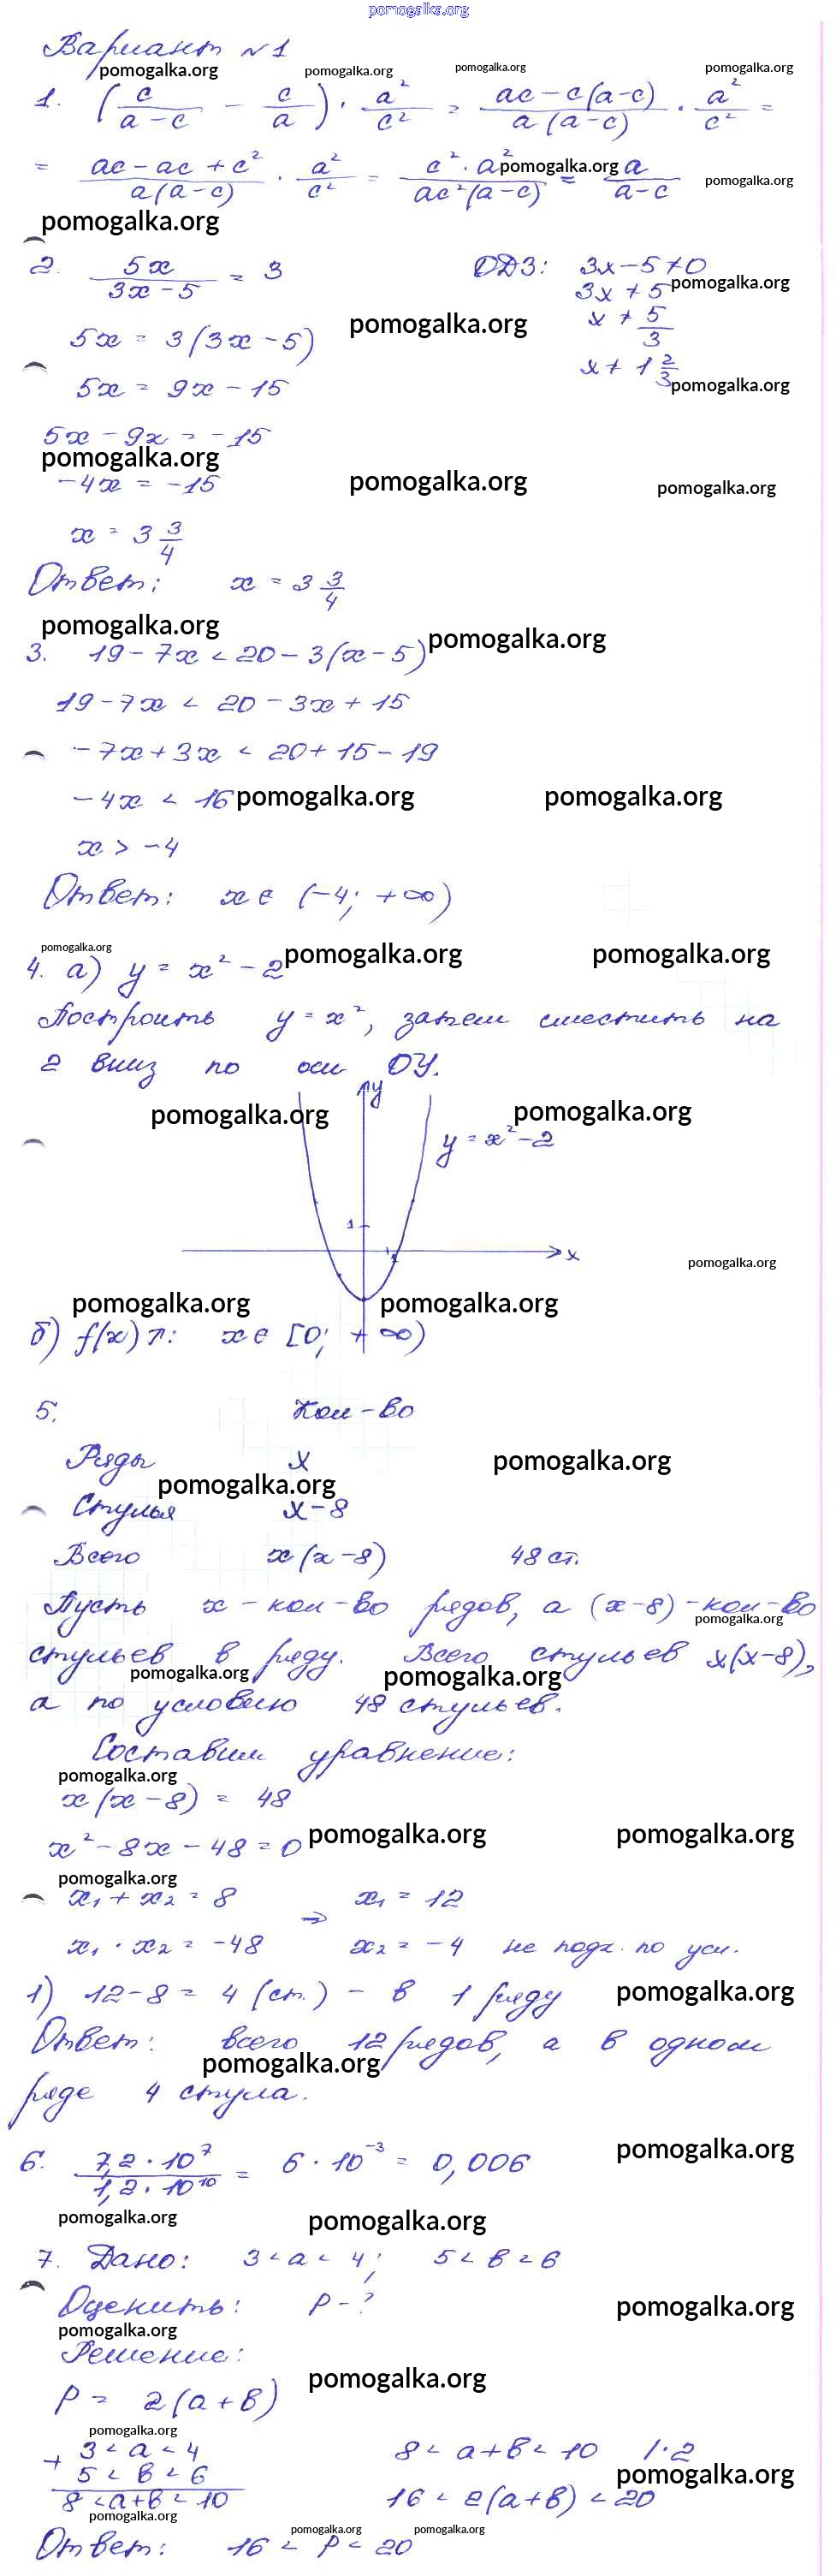 pomogalka.org
Вариант №1
pomogalka.org pomogalka.org pomogalka.org pomogalka.org
1. (c/(a-c) - c/a) · a²/c² = (ac-c(a-c))/(a(a-c)) · a²/c² =
= (ac-ac+c²)/(a(a-c)) · a²/c² = (c²·a²)/(ac²(a-c)) = a/(a-c)
pomogalka.org pomogalka.org
pomogalka.org
2. 5x/(3x-5) = 3 ОДЗ: 3x-5≠0
3x≠5 pomogalka.org
5x = 3(3x-5) pomogalka.org x≠5/3
5x = 9x-15 x≠1 2/3 pomogalka.org
5x-9x = -15
pomogalka.org
-4x = -15 pomogalka.org pomogalka.org
x = 3 3/4
Ответ: x = 3 3/4
pomogalka.org pomogalka.org
3. 19-7x < 20-3(x-5)
19-7x < 20-3x+15
-7x+3x < 20+15-19
-4x < 16 pomogalka.org pomogalka.org
x > -4
Ответ: x∈(-4; +∞)
pomogalka.org
4. а) y = x²-2 pomogalka.org pomogalka.org
Построить y = x², затем сместить на
2 вниз по оси ОУ.
y
pomogalka.org pomogalka.org
y = x²-2
1
1 x
pomogalka.org
pomogalka.org pomogalka.org
б) f(x)↗: x∈[0; +∞)
5. Кол-во
Ряды x pomogalka.org
pomogalka.org
Стулья x-8
Всего x(x-8) 48 ст.
Пусть x - кол-во рядов, а (x-8) - кол-во
pomogalka.org
стульев в ряду. Всего стульев x(x-8),
pomogalka.org pomogalka.org
а по условию 48 стульев.
Составим уравнение:
pomogalka.org
x(x-8) = 48
x²-8x-48=0 pomogalka.org pomogalka.org
pomogalka.org
x₁+x₂ = 8 ⇒ x₁ = 12
x₁·x₂ = -48 x₂ = -4 не подх. по усл.
1) 12-8 = 4 (ст.) - в 1 ряду pomogalka.org
Ответ: всего 12 рядов, а в одном
pomogalka.org
ряде 4 стула.
6. (7,2·10⁷)/(1,2·10¹⁰) = 6·10⁻³ = 0,006 pomogalka.org
pomogalka.org pomogalka.org
7. Дано: 3<a<4; 5<b<6
Оценить: P-? pomogalka.org
pomogalka.org
Решение:
pomogalka.org
P = 2(a+b)
pomogalka.org
+ 3<a<4 8<a+b<10 |·2
5<b<6 pomogalka.org
8<a+b<10 16<2(a+b)<20
pomogalka.org
pomogalka.org pomogalka.org
Ответ: 16<P<20